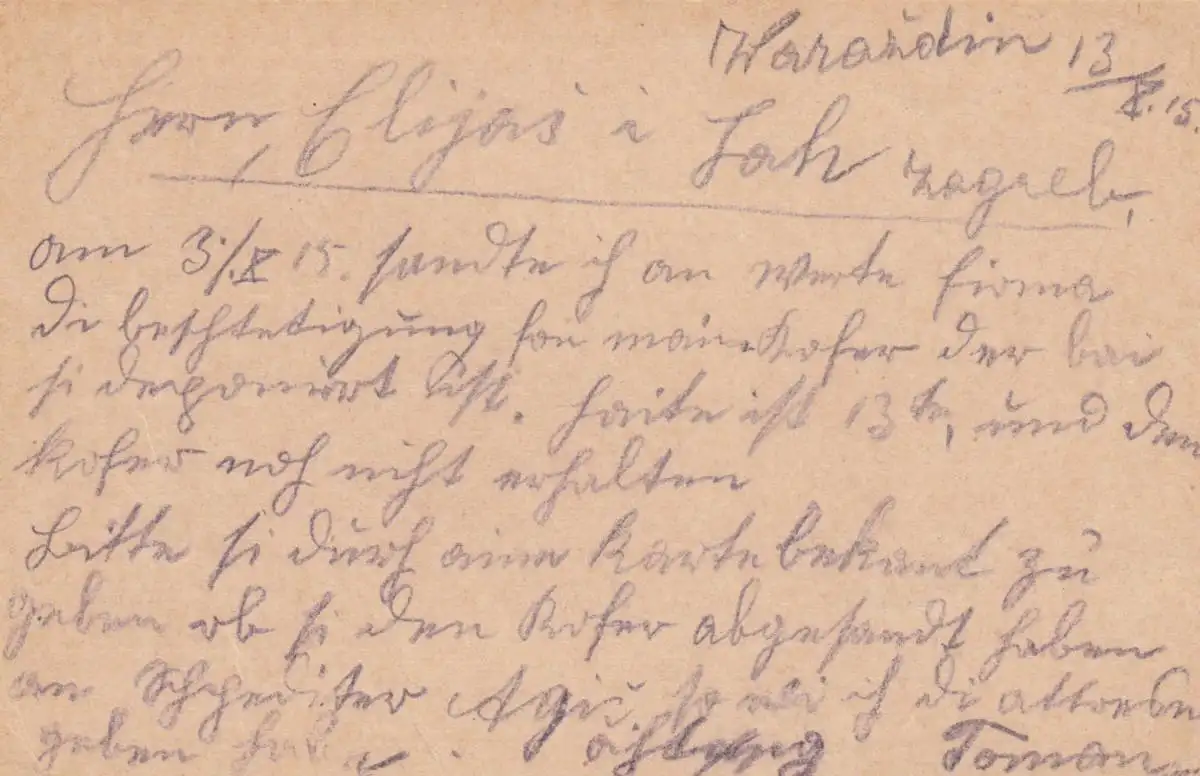 Waraždin 13/X. 15.
Herrn, Elijaš i Lah Zagreb,
am 3./X 15. sandte ich an werte Firma
di beschtetigung fon main Kofer der bai
si deponirt ist. Haite ist 13te, und den
Kofer noh nicht erhalten
Bitte si durch aine Karte bekant zu
geben ob si den Kofer abgesandt haben
an Schpediter so wi ich di attrese
geben hab. achtung Toman